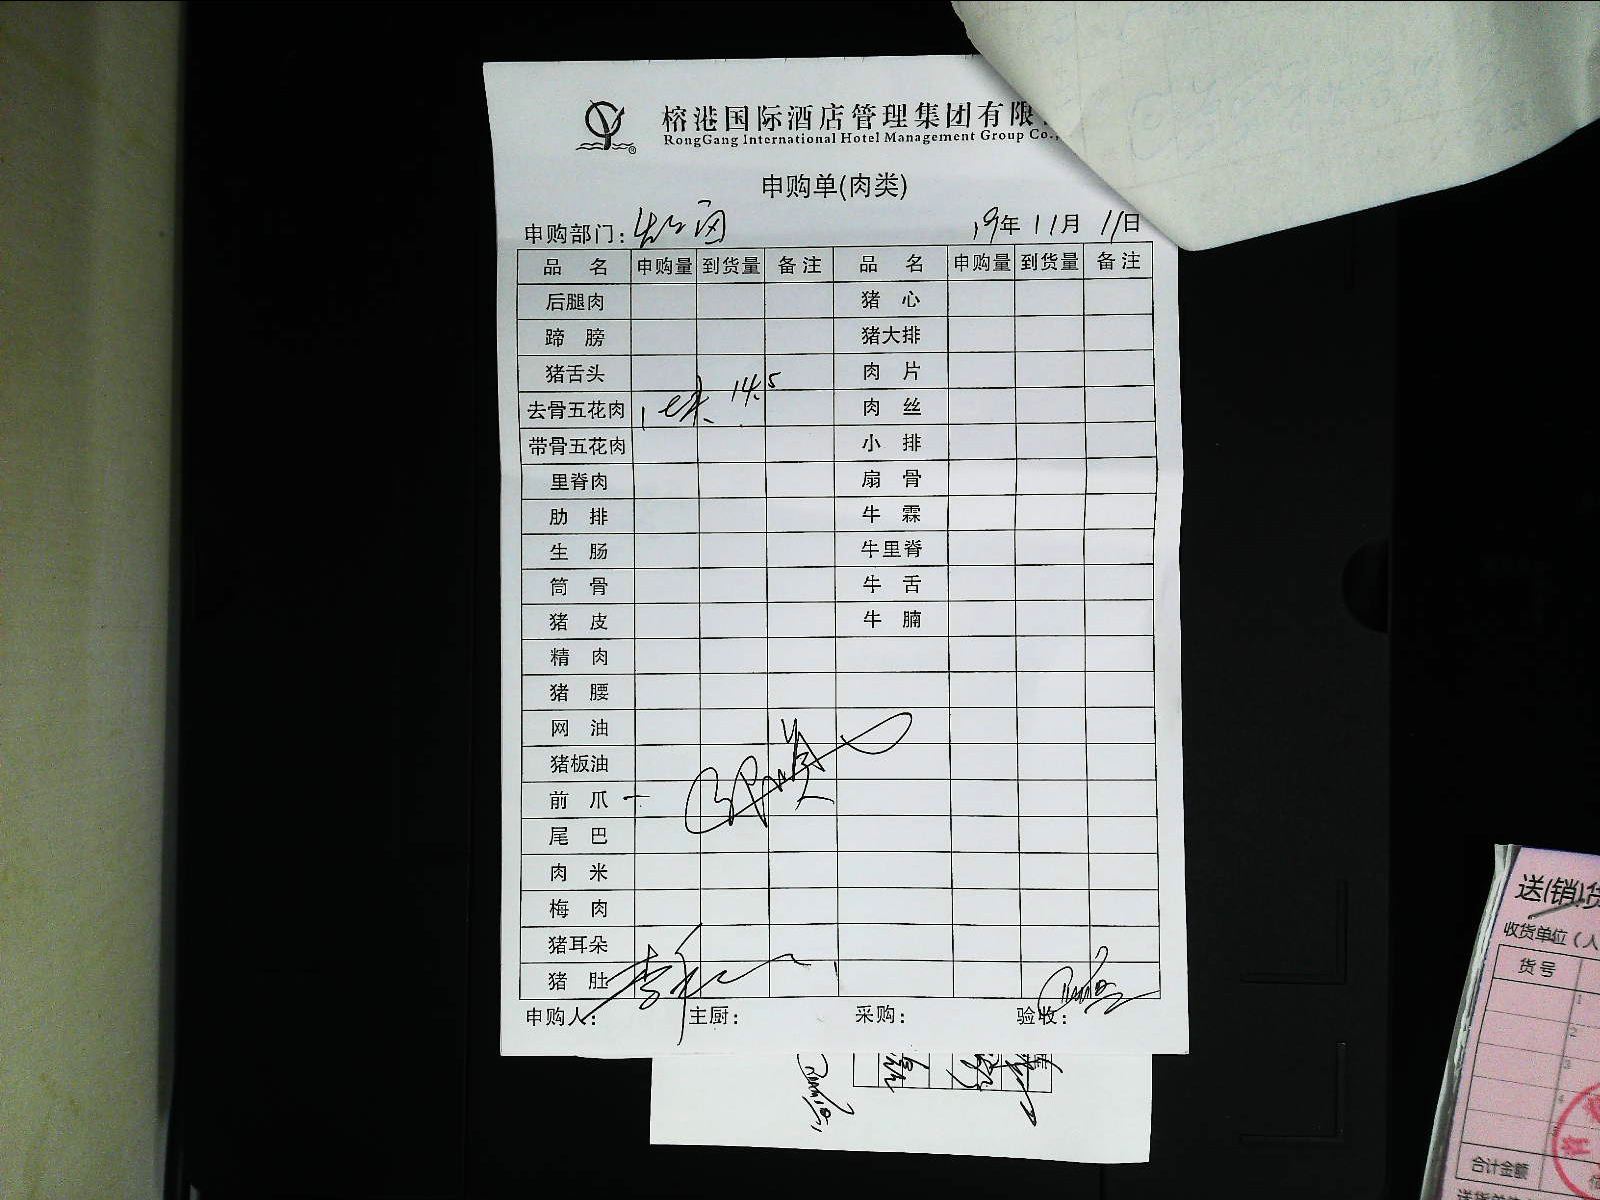 榕港国际酒店管理集团有限
RongGang International Hotel Management Group Co.,
申购单(肉类)
申购部门: 19年11月11日
品名 申购量 到货量 备注 品名 申购量 到货量 备注
后腿肉 猪心
蹄膀 猪大排
猪舌头 肉片
去骨五花肉 14.5 肉丝
带骨五花肉 小排
里脊肉 扇骨
肋排 牛霖
生肠 牛里脊
筒骨 牛舌
猪皮 牛腩
精肉
猪腰
网油
猪板油
前爪
尾巴
肉米
梅肉
猪耳朵
猪肚
申购人: 主厨: 采购: 验收:
送(销)货
收货单位(人
货号
1
2
3
4
合计金额